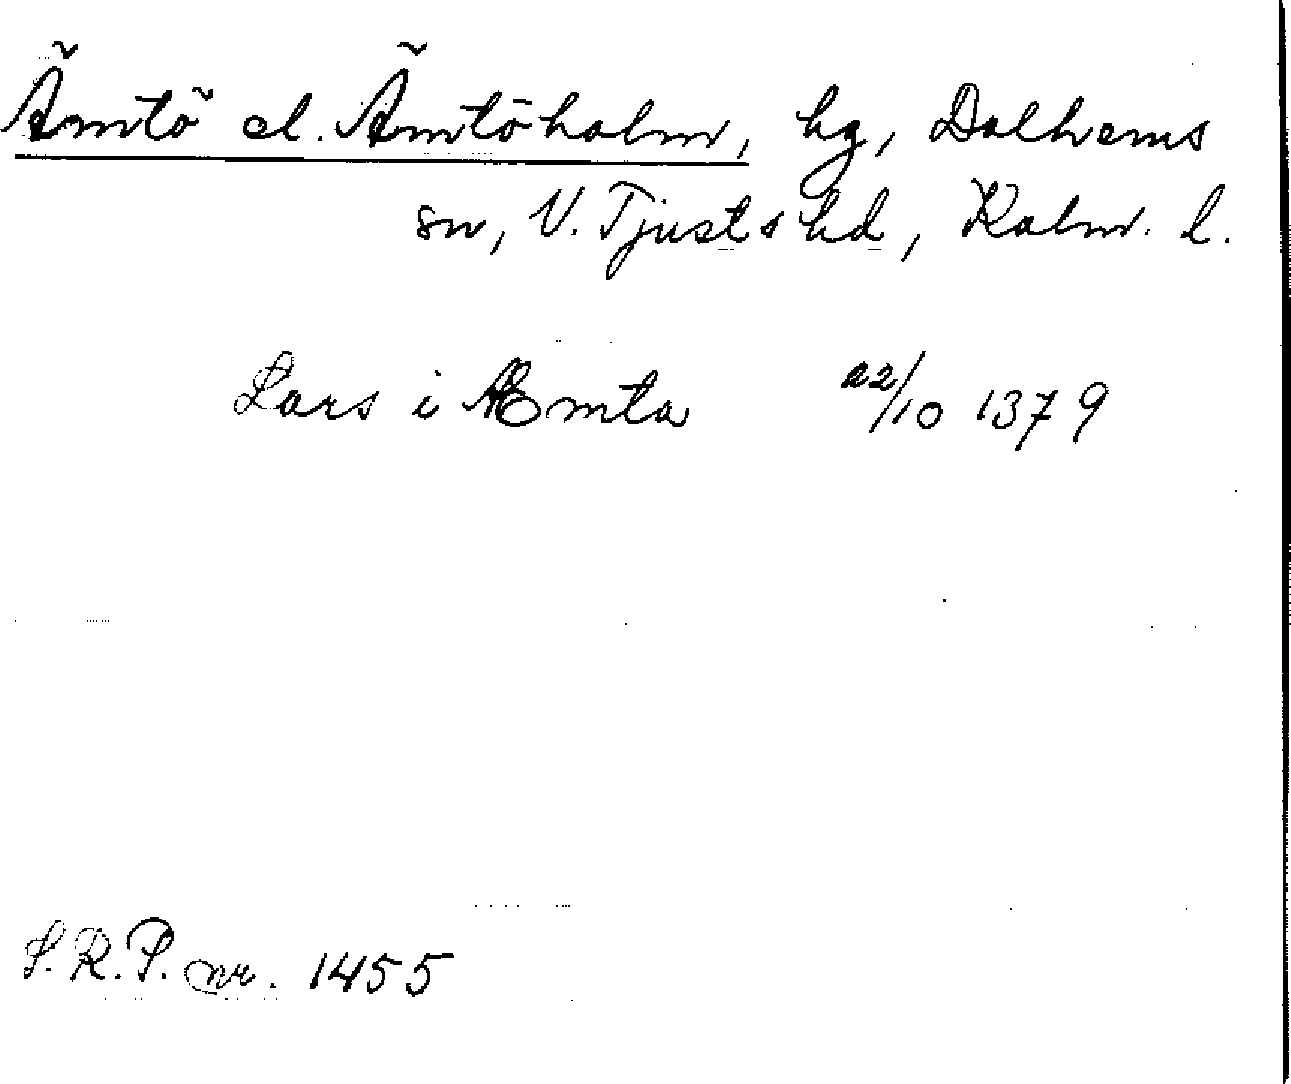 Ämtö el. Ämtöholm, hg, Dalhems
sn, V. Tjusts hd, Kalm. l.
Lars i Æmta 22/10 1379
S.R.P. nr. 1455